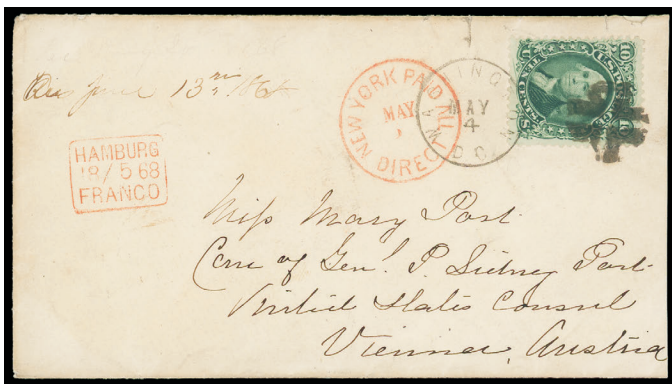 June 13
NEW YORK PAID ALL
MAY
DIRECT
WASHINGTON
MAY
4
D.C.
10 U.S. POSTAGE 10
TEN CENTS
HAMBURG
18/5 68
FRANCO
Miss Mary Post
Care of Genl. P. Sidney Post
United States Consul
Vienna, Austria